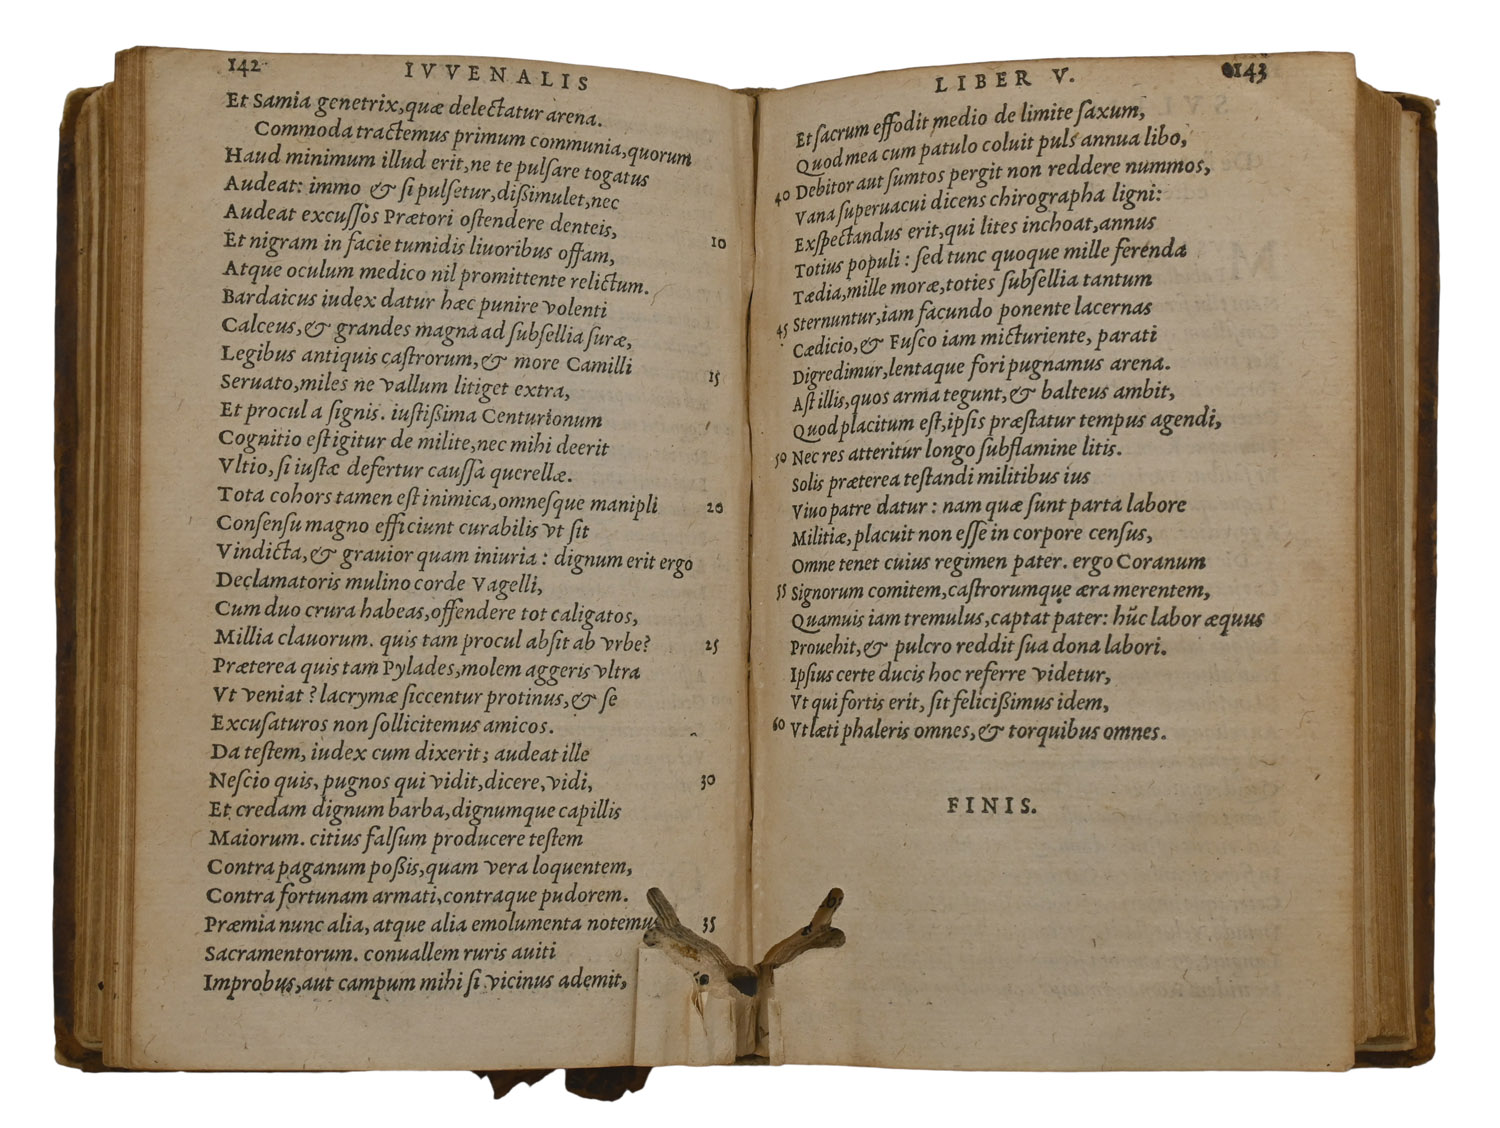 142 IVVENALIS
Et Samia genetrix, quæ delectatur arena.
Commoda tractemus primum communia, quorum
Haud minimum illud erit, ne te pulſare togatus
Audeat: immo & ſi pulſetur, dißimulet, nec
Audeat excuſſos Prætori oſtendere denteis,
Et nigram in facie tumidis liuoribus offam, 10
Atque oculum medico nil promittente relictum.
Bardaicus iudex datur hæc punire volenti
Calceus, & grandes magna ad ſubſellia ſuræ,
Legibus antiquis caſtrorum, & more Camilli
Seruato, miles ne vallum litiget extra, 15
Et procul a ſignis. iuſtißima Centurionum
Cognitio eſt igitur de milite, nec mihi deerit
Vltio, ſi iuſtæ defertur cauſſa querellæ.
Tota cohors tamen eſt inimica, omneſque manipli 20
Conſenſu magno efficiunt curabilis vt ſit
Vindicta, & grauior quam iniuria: dignum erit ergo
Declamatoris mulino corde Vagelli,
Cum duo crura habeas, offendere tot caligatos,
Millia clauorum. quis tam procul abſit ab vrbe? 25
Præterea quis tam Pylades, molem aggeris vltra
Vt veniat? lacrymæ ſiccentur protinus, & ſe
Excuſaturos non ſollicitemus amicos.
Da teſtem, iudex cum dixerit; audeat ille
Neſcio quis, pugnos qui vidit, dicere, vidi, 30
Et credam dignum barba, dignumque capillis
Maiorum. citius falſum producere teſtem
Contra paganum poßis, quam vera loquentem,
Contra fortunam armati, contraque pudorem.
Præmia nunc alia, atque alia emolumenta notemus 35
Sacramentorum. conuallem ruris auiti
Improbus, aut campum mihi ſi vicinus ademit,
LIBER V. 143
Et ſacrum effodit medio de limite ſaxum,
Quod mea cum patulo coluit puls annua libo,
40 Debitor aut ſumtos pergit non reddere nummos,
Vana ſuperuacui dicens chirographa ligni:
Exſpectandus erit, qui lites inchoat, annus
Totius populi: ſed tunc quoque mille ferenda
Tædia, mille moræ, toties ſubſellia tantum
45 Sternuntur, iam facundo ponente lacernas
Cædicio, & Fuſco iam micturiente, parati
Digredimur, lentaque fori pugnamus arena.
Aſt illis, quos arma tegunt, & balteus ambit,
Quod placitum eſt, ipſis præſtatur tempus agendi,
50 Nec res atteritur longo ſubflamine litis.
Solis præterea teſtandi militibus ius
Viuo patre datur: nam quæ ſunt parta labore
Militiæ, placuit non eſſe in corpore cenſus,
Omne tenet cuius regimen pater. ergo Coranum
55 Signorum comitem, caſtrorumque æra merentem,
Quamuis iam tremulus, captat pater: hūc labor æquus
Prouehit, & pulcro reddit ſua dona labori.
Ipſius certe ducis hoc referre videtur,
Vt qui fortis erit, ſit felicißimus idem,
60 Vt læti phaleris omnes, & torquibus omnes.
FINIS.